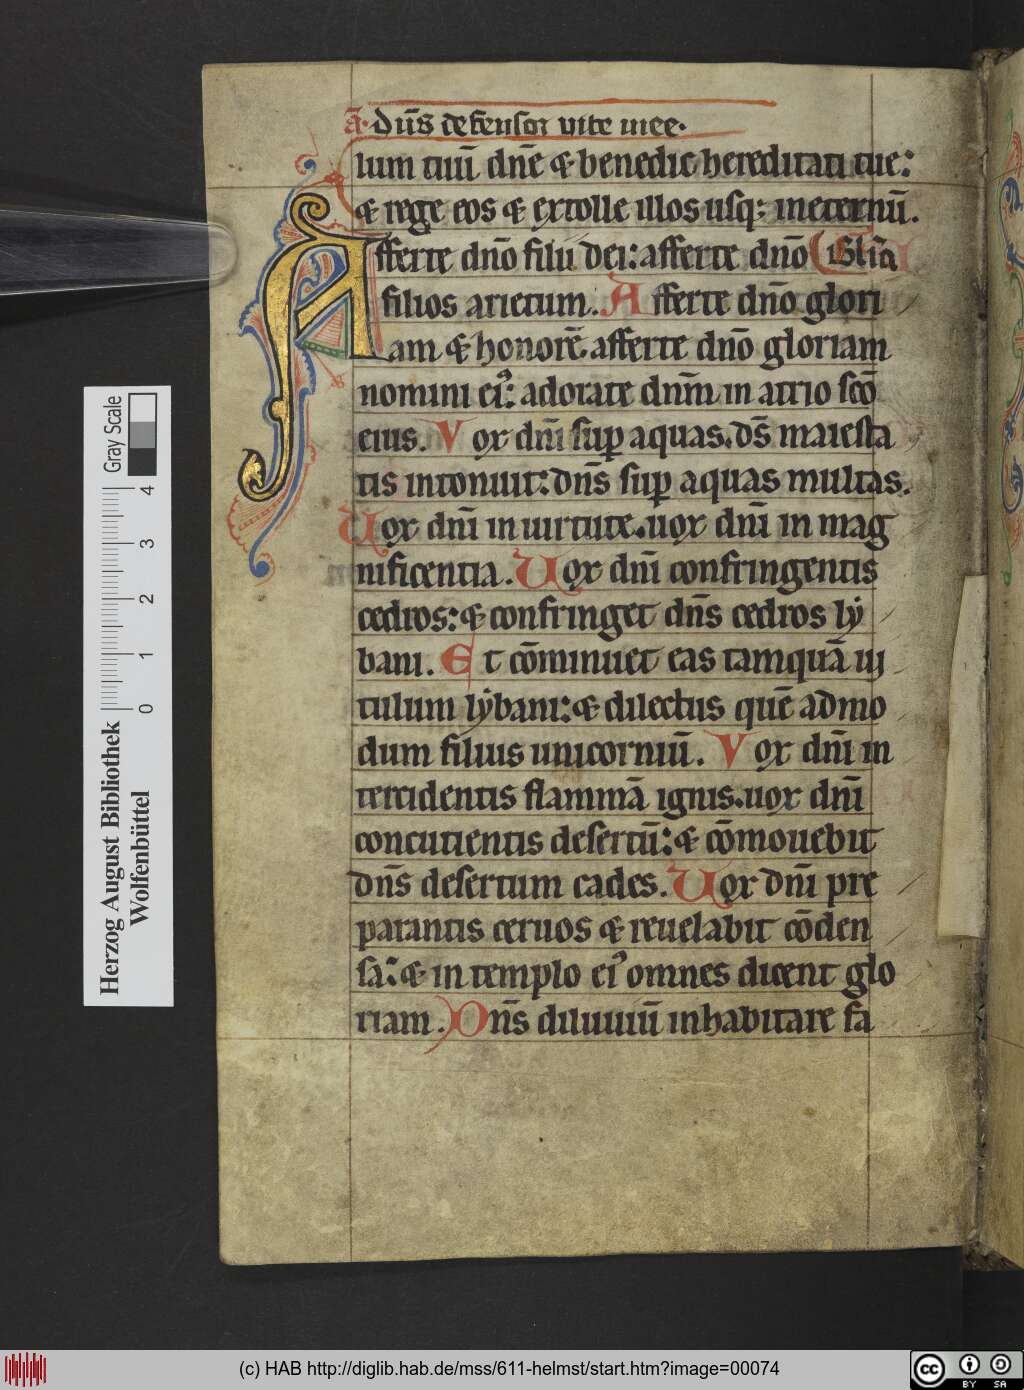 ā. dn̄s defensor vite mee.
lum tuū dn̄e & benedic hereditati tue:
& rege eos & extolle illos usq; ineternū.
Afferte dn̄o filii dei: afferte dn̄o (Gl̄ia
filios arietum. Afferte dn̄o glori
am & honorē afferte dn̄o gloriam
nomini ei': adorate dnm̄ in atrio sc̄o
eius. Vox dn̄i sup aquas. ds̄ maiesta
tis intonuit: dn̄s sup aquas multas.
Vox dn̄i in uirtute. uox dn̄i in mag
nificentia. Vox dn̄i confringentis
cedros: & confringet dn̄s cedros ly
bani. Et cōminuet eas tamquā ui
tulum lybani: & dilectus quē admo
dum filius unicorniū. Vox dn̄i in
tercidentis flammā ignis. uox dn̄i
concutientis desertū: & cōmouebit
dn̄s desertum cades. Vox dn̄i pre
parantis ceruos & reuelabit cōden
sa: & in templo ei' omnes dicent glo
riam. Dn̄s diluuiū inhabitare fa
Gray Scale
0 1 2 3 4
Herzog August Bibliothek
Wolfenbüttel
(c) HAB http://diglib.hab.de/mss/611-helmst/start.htm?image=00074
cc BY SA